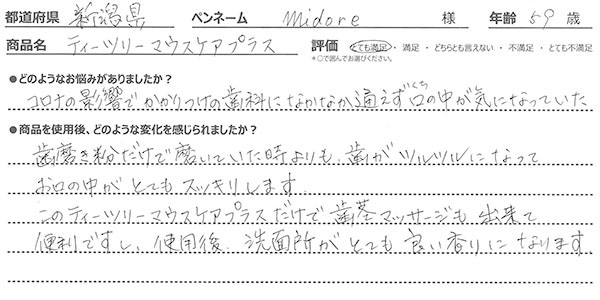 都道府県 新潟県 ペンネーム midore 様 年齢 59 歳
商品名 ティーツリーマウスケアプラス 評価 とても満足 ・ 満足 ・ どちらとも言えない ・ 不満足 ・ とても不満足
*○で囲んでお選びください。
●どのようなお悩みがありましたか?
コロナの影響でかかりつけの歯科になかなか通えず口(くち)の中が気になっていた
●商品を使用後、どのような変化を感じられましたか?
歯磨き粉だけで磨いていた時よりも、歯がツルツルになって
お口の中がとてもスッキリします。
このティーツリーマウスケアプラスだけで歯茎マッサージも出来て
便利ですし、使用後、洗面所がとても良い香りになります。